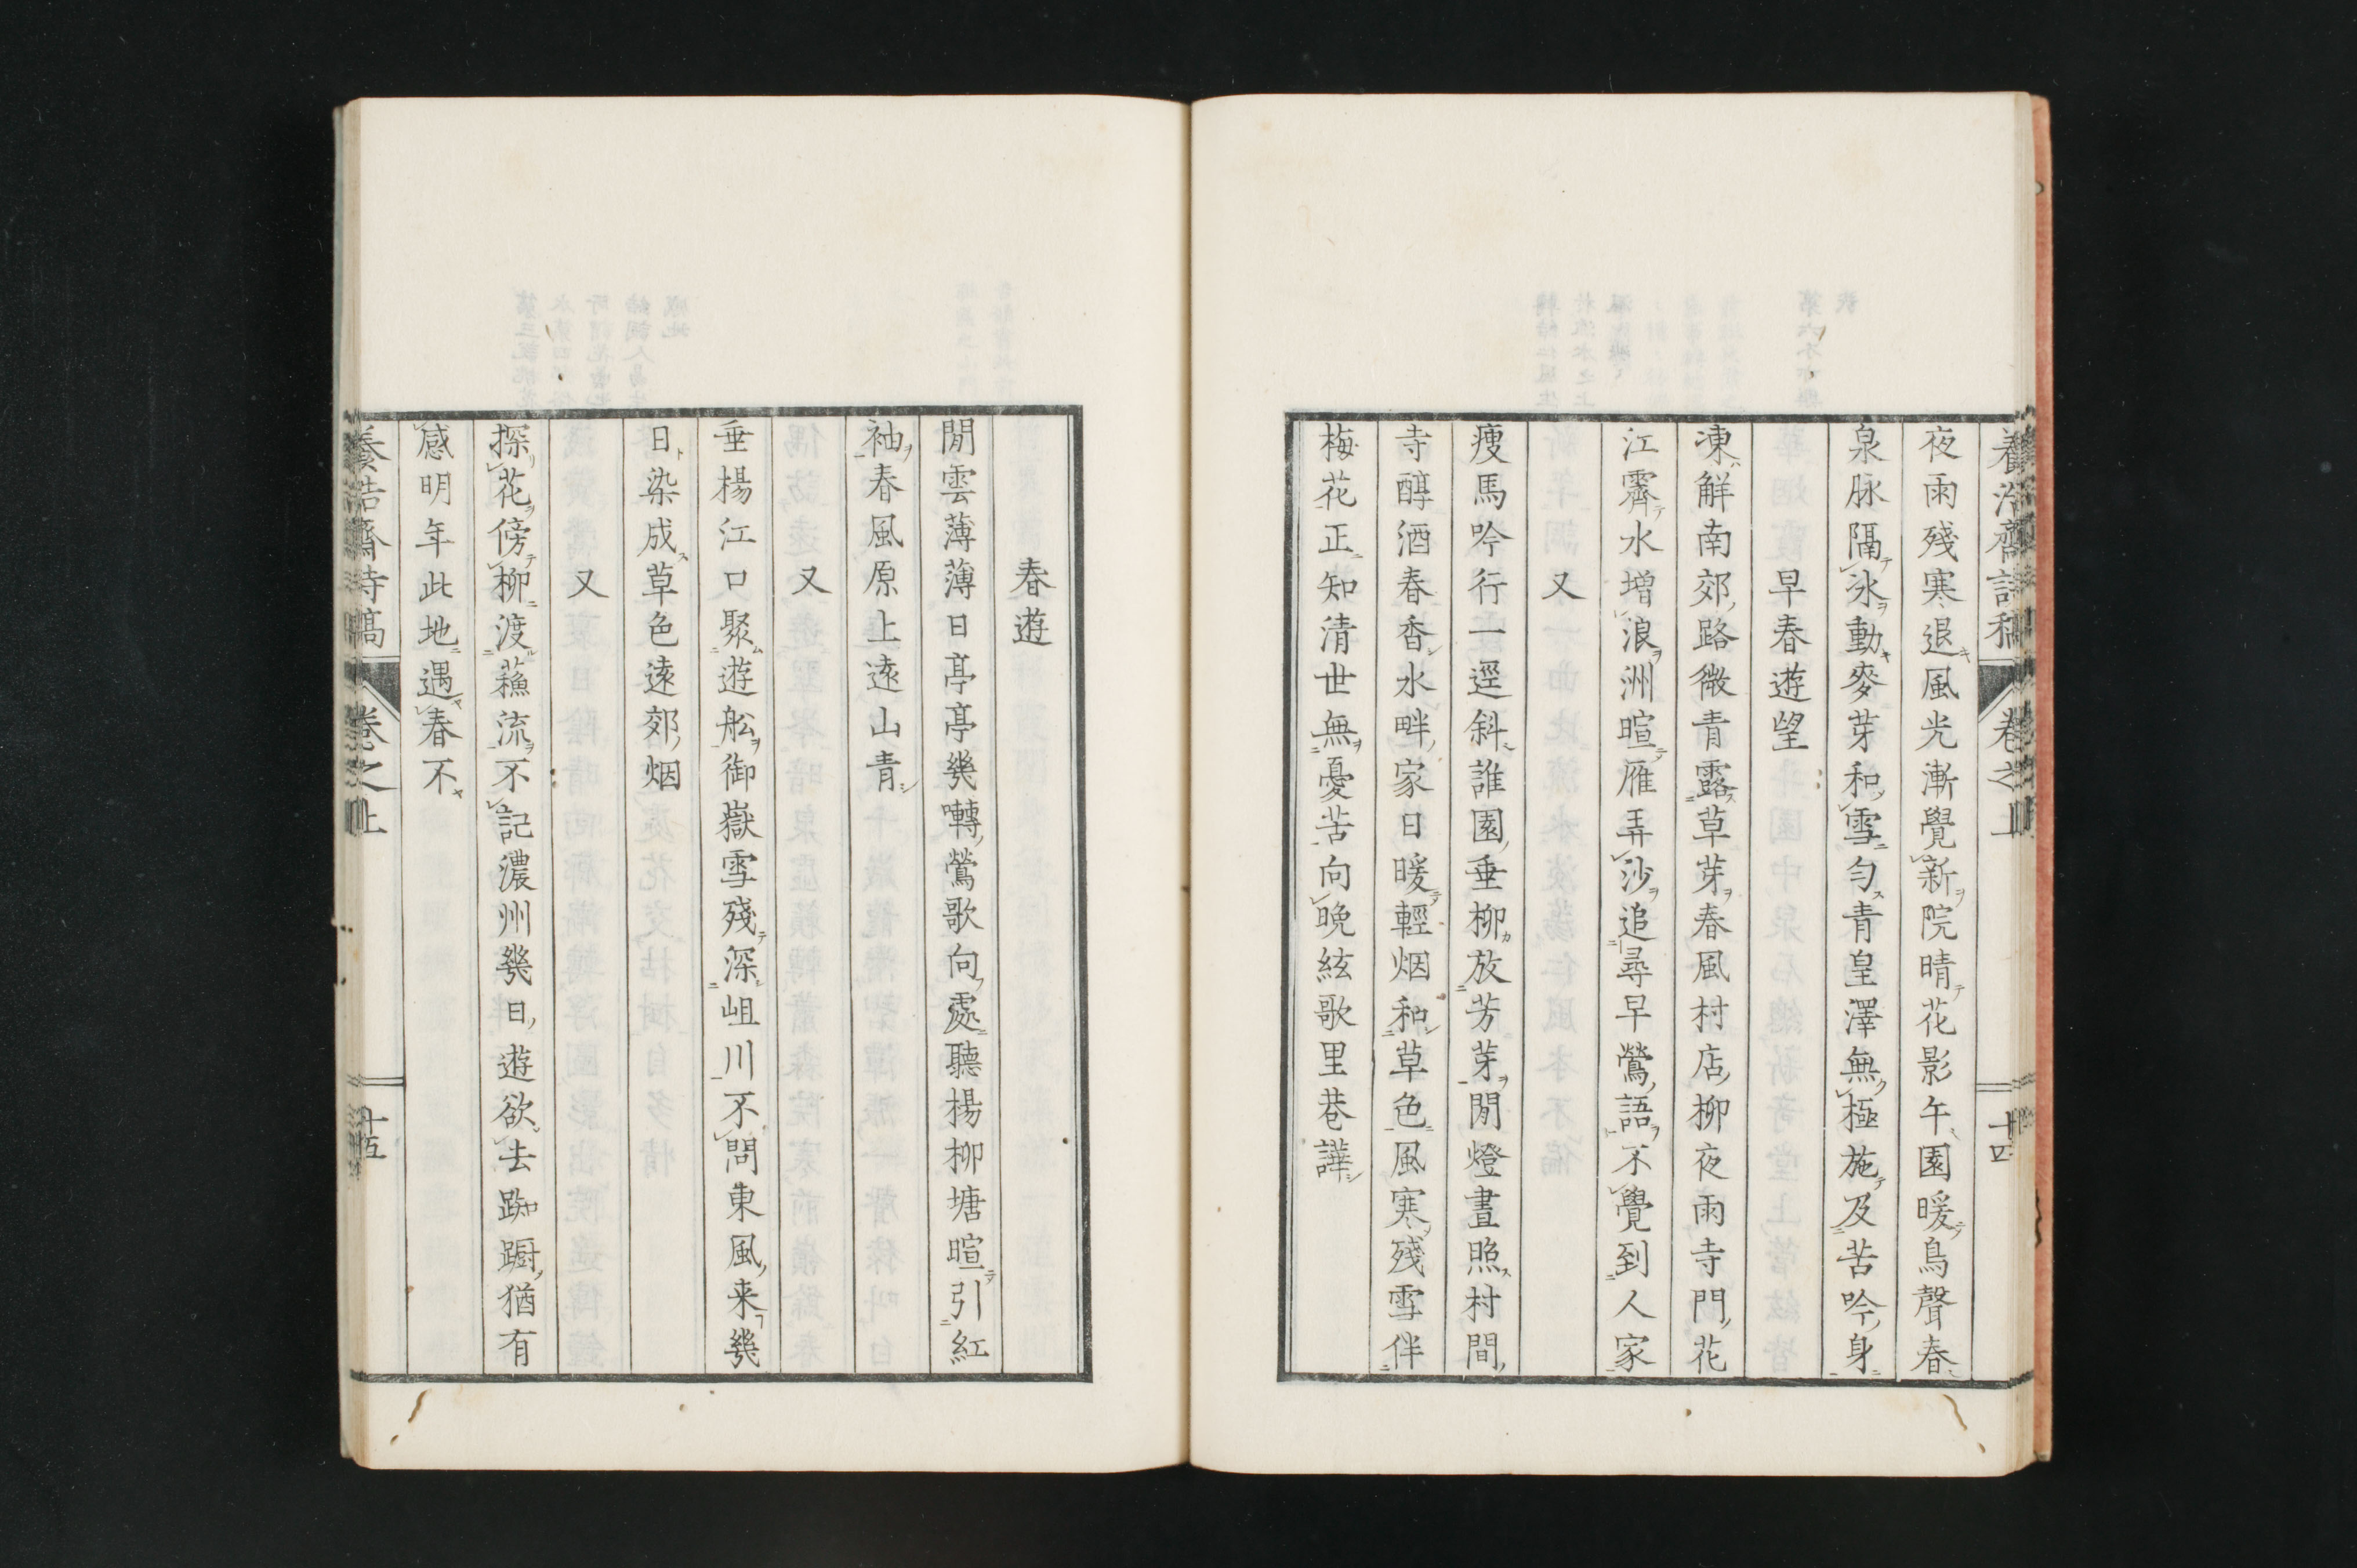 養浩齋詩稿 卷之上 十四
夜雨殘寒退風光漸覺新院晴花影午園暖鳥聲春
泉脉隔氷動麥芽和雪勻青皇澤無極施及苦吟身
早春遊望
凍解南郊路微青露草芽春風村店柳夜雨寺門花
江霽水增浪洲暄雁弄沙追尋早鶯語不覺到人家
又
瘦馬吟行一逕斜誰園垂柳放芳芽閒燈晝照村間
寺醇酒春香水畔家日暖輕烟和草色風寒殘雪伴
梅花正知清世無憂苦向晚絃歌里巷譁
春遊
閒雲薄薄日亭亭幾囀鶯歌向處聽楊柳塘暄引紅
袖春風原上遠山青
又
垂楊江口聚遊舩御嶽雪殘深岨川不問東風来幾
日染成草色遠郊烟
又
探花傍柳渡蘓流不記濃州幾日遊欲去踟蹰猶有
感明年此地遇春不
養浩齋詩稿 卷之上 十五